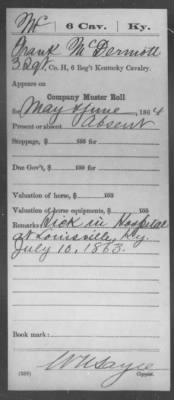 McD | 6 Cav. | Ky.
Frank McDermott
3 Sgt, Co. H, 6 Reg't Kentucky Cavalry.
Appears on
Company Muster Roll
for May & June, 1864
Present or absent Absent
Stoppage, $ 100 for
Due Gov't, $ 100 for
Valuation of horse, $ 100
Valuation of horse equipments, $ 100
Remarks: Sick in Hospital
at Louisville, Ky.
July 10, 1863.
Book mark:
Copyist.